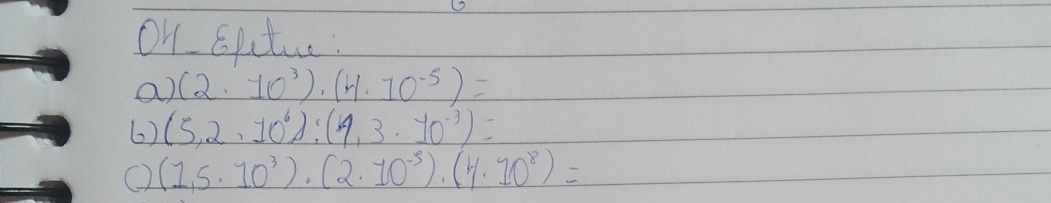 04- Efetue:
a) (2 . 10³) . (4 . 10⁻⁵) =
b) (5,2 . 10⁶) : (1,3 . 10⁻³) =
c) (1,5 . 10³) . (2 . 10⁻⁵) . (4 . 10⁸) =